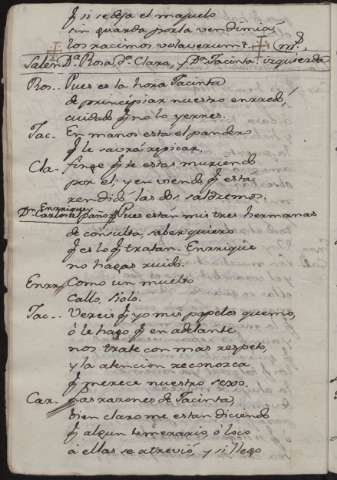 q̃ si se deja el majuelo
sin guarda por la vendimia,
los racimos volaverunt. m.ª
Salen D.ª Rosa, D.ª Clara, y D.ª Jacinta: izquierda
Ros.. Pues es la hora Jacinta
de principiar nuestro enredo,
cuidado q̃ no lo yerres.
Jac. En manos está el pandero
q̃ le savrá repicar.
Cla- finge q̃ te estas muriendo
por el, y en viendo q̃ está
rendido las dos saldremos.
D.n Enrique y D.n Carlos al paño Pues estan mis tres hermanas
de consulta, saber quiero
q̃ es lo q̃ tratan. Enrique
no hagas ruido.
Enrr. Como un muerto
Callo, Solo.
Jac-. Vereis q̃ yo mis papeles quemo,
ó le hago q̃ en adelante
nos trate con mas respeto,
y la atencion reconozca
q̃ merece nuestro sexo.
Car. las razones de Jacinta,
bien claro me estan diciendo
q̃ algun temerario, ó loco
á ellas se atrevió, y si llego